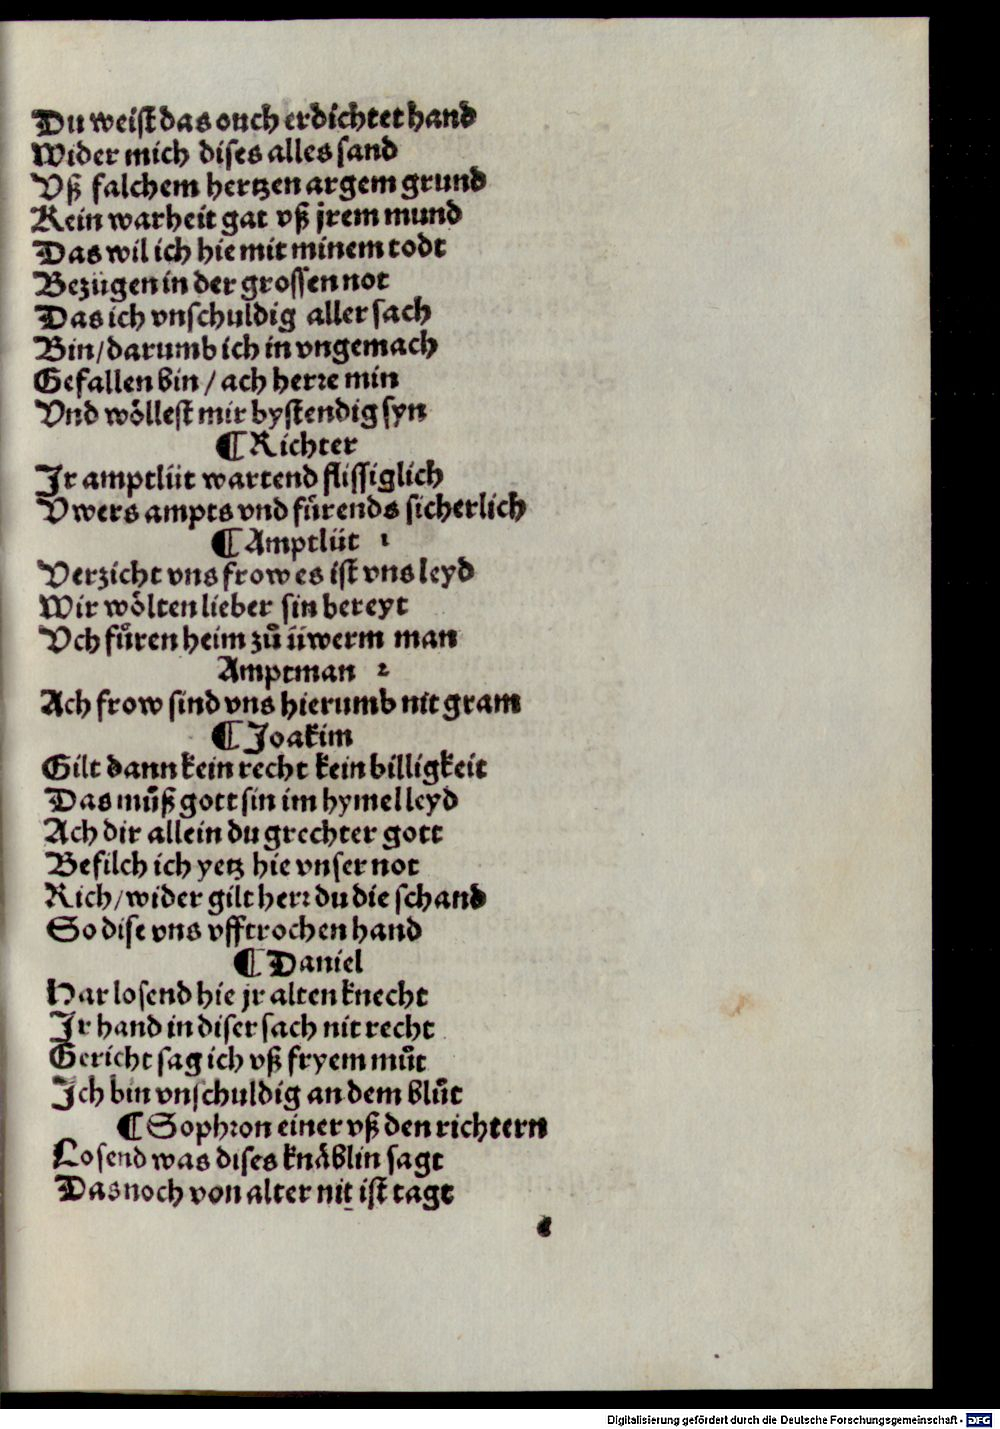 Du weiſt das ouch erdichtet hand
Wider mich diſes alles ſand
Vß falchem hertzen argem grund
Kein warheit gat vß jrem mund
Das wil ich hie mit minem todt
Bezügen in der groſſen not
Das ich vnſchuldig aller ſach
Bin/darumb ich in vngemach
Gefallen bin / ach herꝛe min
Vnd wöͤlleſt mir byſtendig ſyn
¶ Richter
Jr amptlüt wartend fliſſiglich
Vwers ampts vnd fuͤrends ſicherlich
¶ Amptlüt 1
Verzicht vns frow es iſt vns leyd
Wir woͤlten lieber ſin bereyt
Vch fuͤren heim zuͦ üwerm man
Amptman 2
Ach frow ſind vns hierumb nit gram
¶ Joakim
Gilt dann kein recht kein billigkeit
Das muͦß gott ſin im hymel leyd
Ach dir allein du grechter gott
Befilch ich yetz hie vnſer not
Rich/wider gilt herꝛ du die ſchand
So diſe vns vfftrochen hand
¶ Daniel
Har loſend hie jr alten knecht
Jr hand in diſer ſach nit recht
Gericht ſag ich vß fryem muͦt
Ich bin vnſchuldig an dem bluͦt
¶ Sophꝛon einer vß den richtern
Loſend was diſes knaͤblin ſagt
Das noch von alter nit iſt tagt
Digitalisierung gefördert durch die Deutsche Forschungsgemeinschaft - DFG